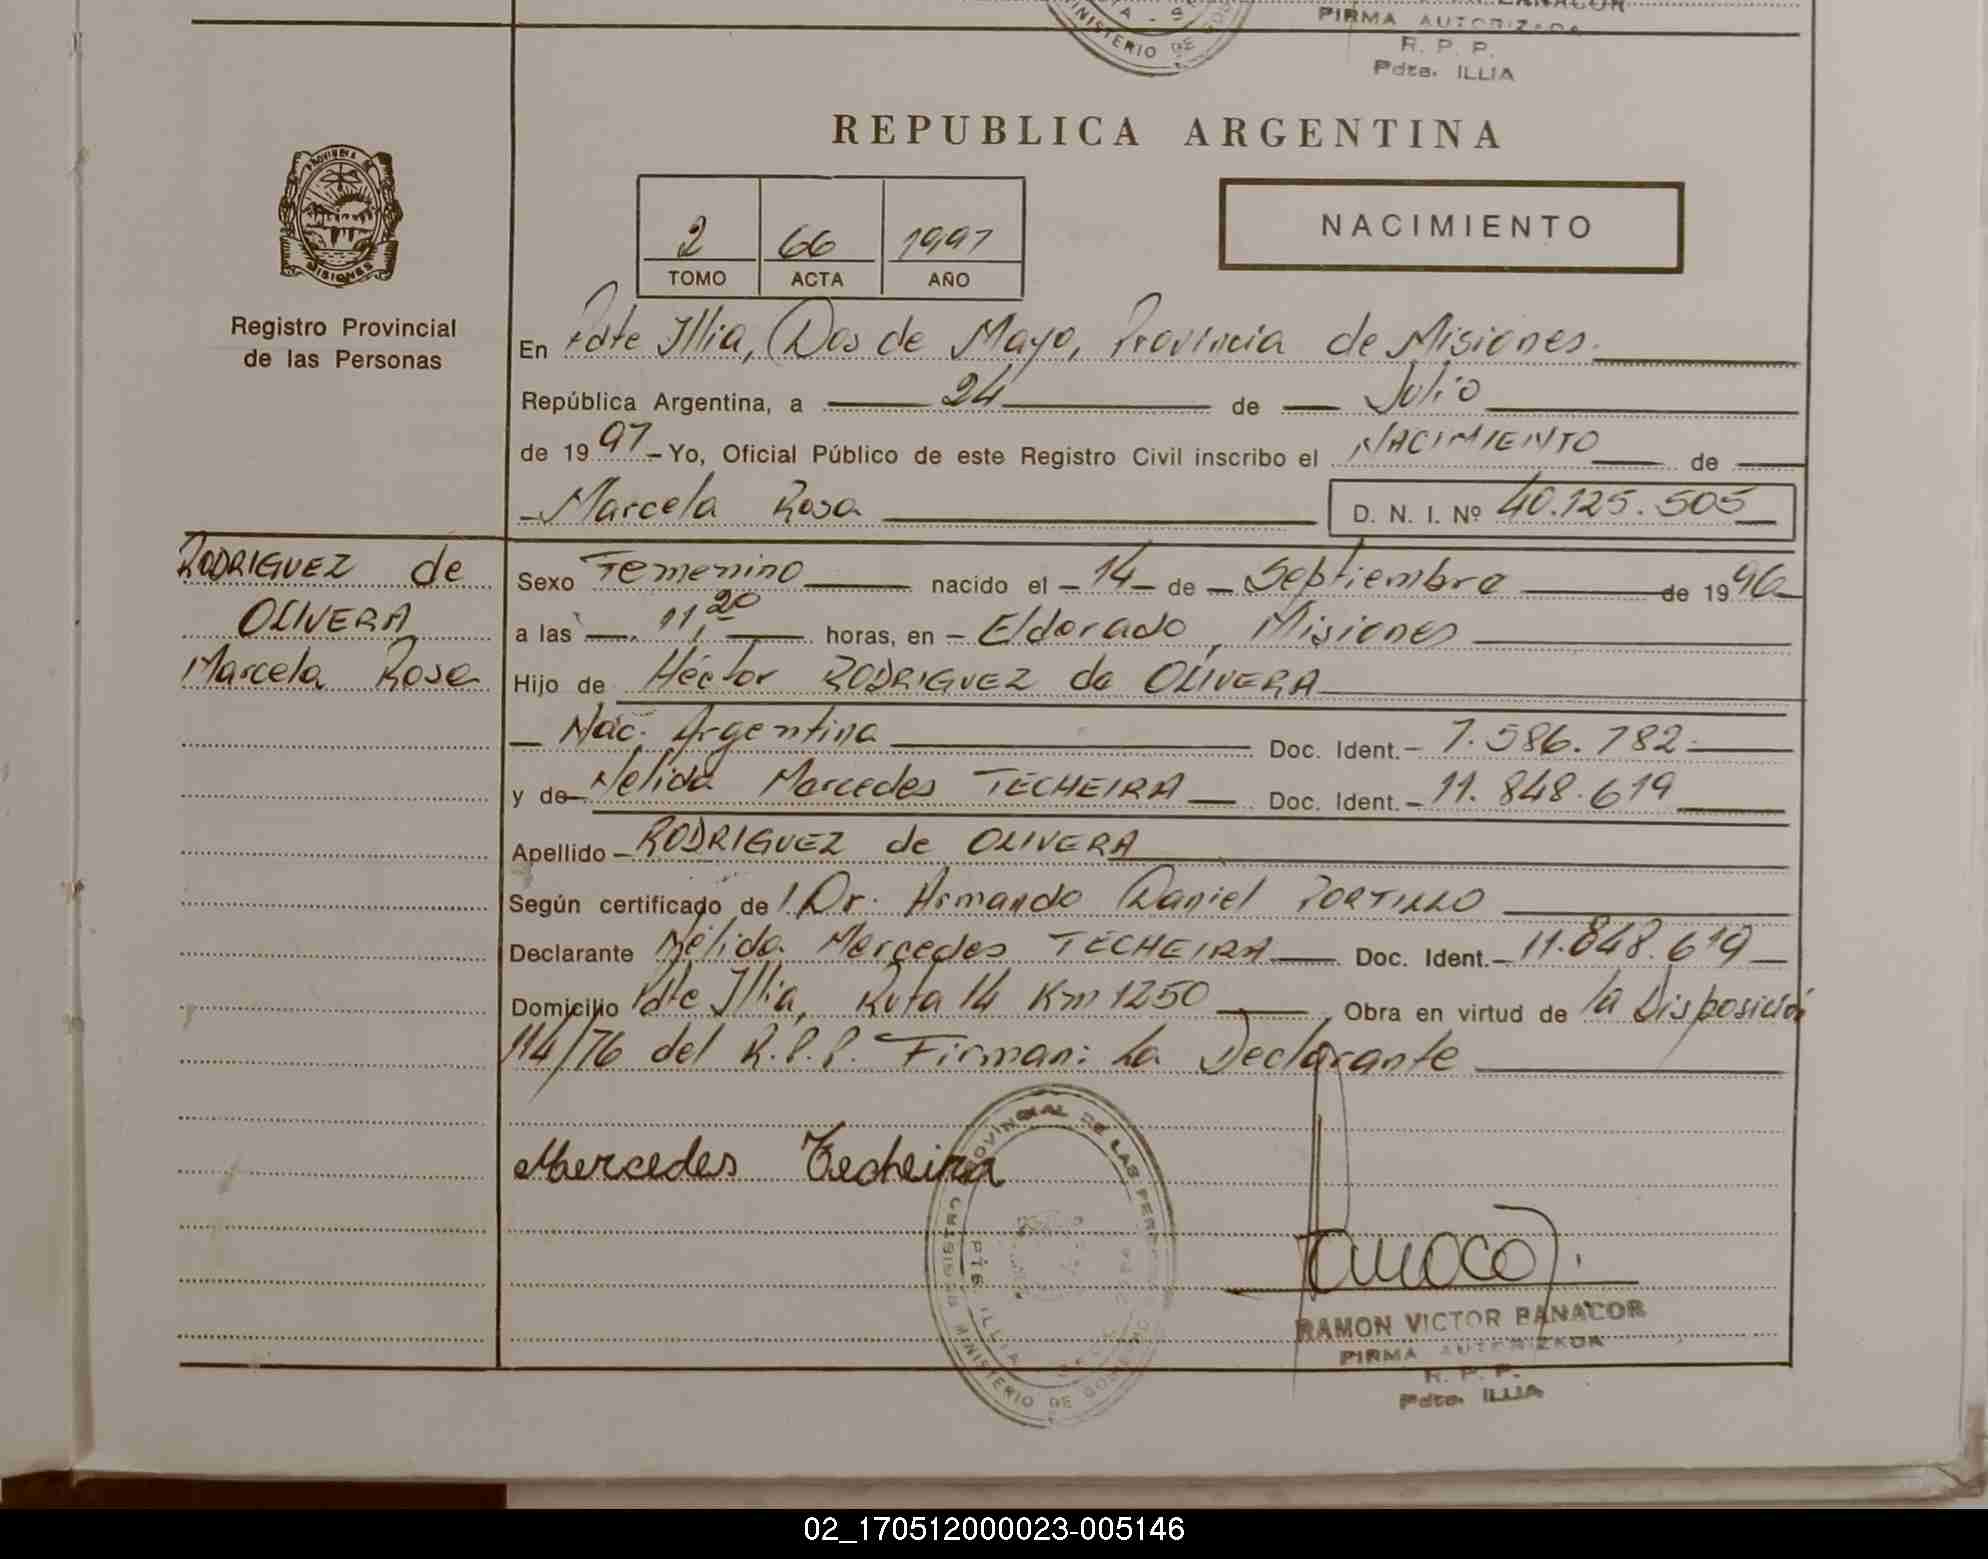 BANACOR
FIRMA AUTORIZADA
R. P. P.
Pdte. ILLIA
MINISTERIO DE
REPUBLICA ARGENTINA
PROVINCIA DE
MISIONES
2 66 1997
TOMO ACTA AÑO
NACIMIENTO
Registro Provincial
de las Personas
En Pdte Illia, Dos de Mayo, Provincia de Misiones.
República Argentina, a 24 de Julio
de 1997 - Yo, Oficial Público de este Registro Civil inscribo el NACIMIENTO de
Marcela Rosa D. N. I. Nº 40.125.505
RODRIGUEZ de
OLIVERA
Marcela Rosa
Sexo Femenino nacido el 14 de Septiembre de 1996
a las 11,20 horas, en Eldorado, Misiones
Hijo de Héctor RODRIGUEZ de OLIVERA
Nac. Argentina Doc. Ident. 7.586.782
y de Nélida Mercedes TECHEIRA Doc. Ident. 11.848.619
Apellido RODRIGUEZ de OLIVERA
Según certificado de Dr. Armando Daniel PORTILLO
Declarante Nélida Mercedes TECHEIRA Doc. Ident. 11.848.619
Domicilio Pdte Illia, Ruta 14 Km 1250 Obra en virtud de la Disposición
114/76 del R.P.P. Firman: La Declarante
Mercedes Techeira
REGISTRO PROVINCIAL DE LAS PERSONAS
PTE. ILLIA
MINISTERIO DE GOBIERNO
RAMON VICTOR BANACOR
FIRMA AUTORIZADA
R. P. P.
Pdte. ILLIA
02_170512000023-005146